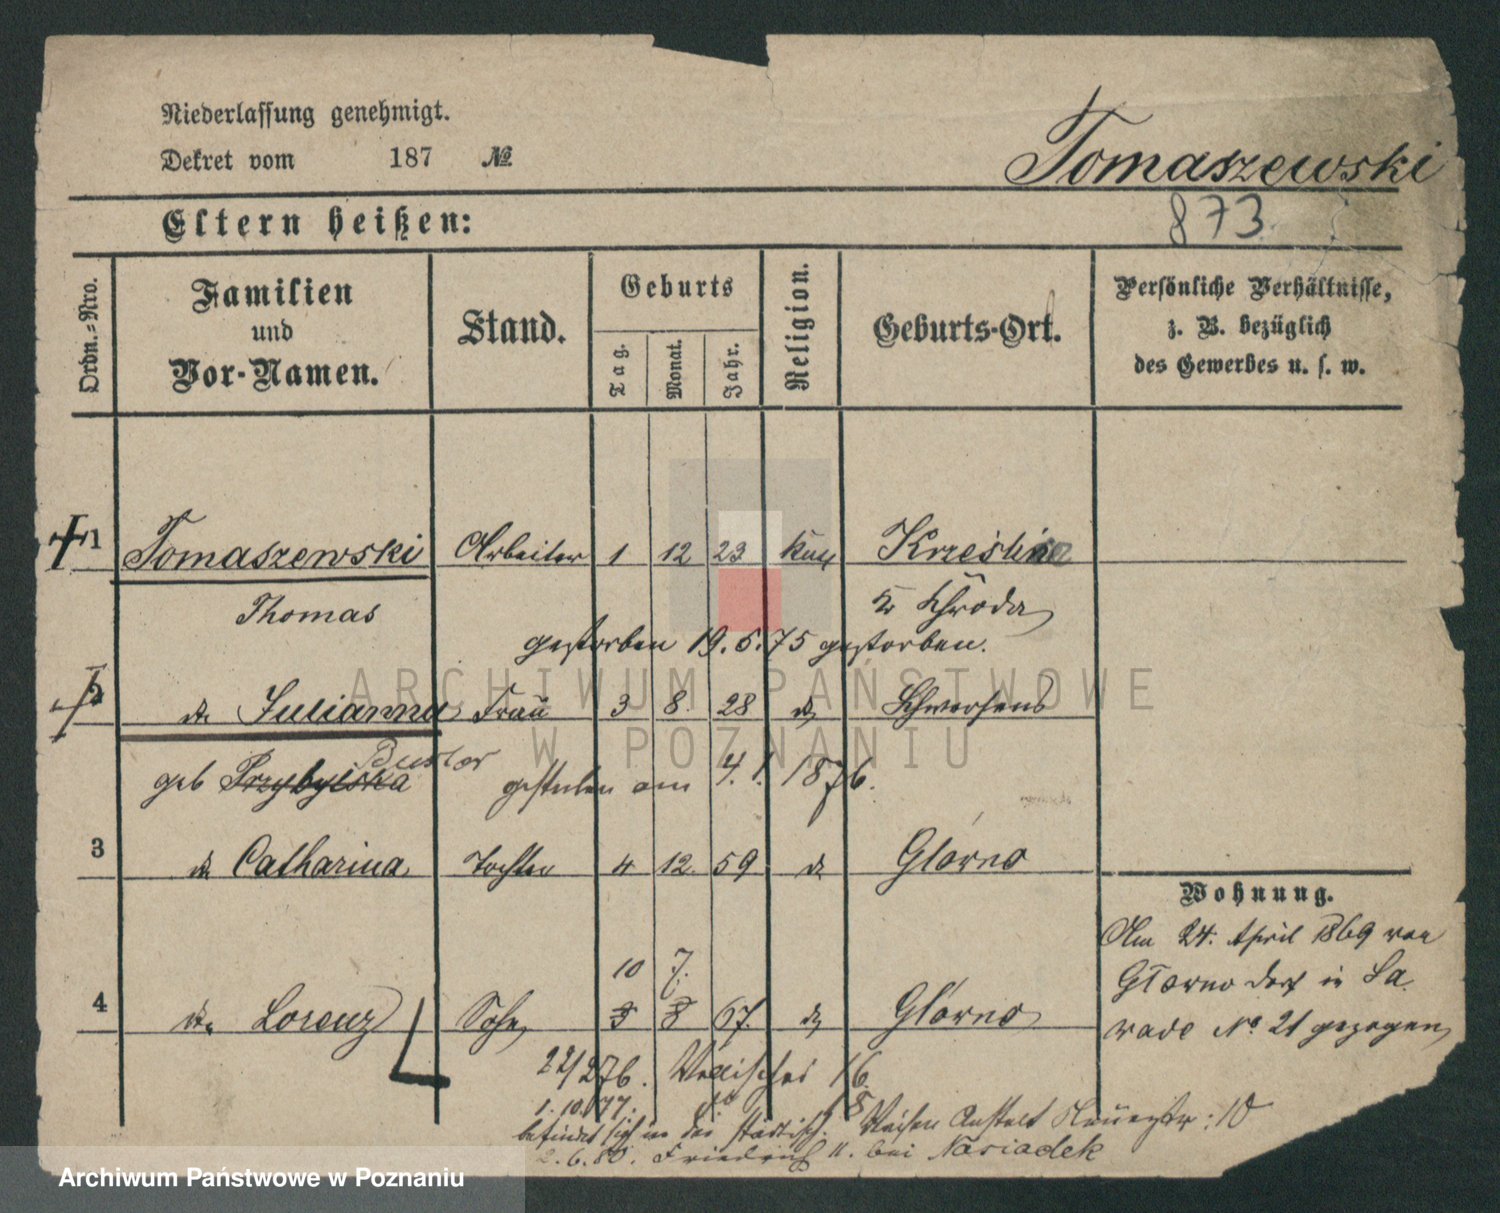 Niederlassung genehmigt.
Dekret vom 187 №
Tomaszewski
873
Eltern heißen:
Ordn.=Nro.
Familien
und
Vor-Namen.
Stand.
Geburts
Tag.
Monat.
Jahr.
Religion.
Geburts-Ort.
Persönliche Verhältnisse,
z. B. bezüglich
des Gewerbes u. s. w.
1 Tomaszewski Arbeiter 1 12 23 Krześlin
Thomas Kr Schroda
gestorben 19. 5. 75 gestorben.
ARCHIWUM PAŃSTWOWE
2 do Julianna Frau 3 8 28 do Schwersenz
W POZNANIU
geb Przybylska gestorben am 4. 1. 1876.
3 do Catharina Tochter 4 12 59 do Głowno
Wohnung.
Am 24. April 1869 von
Głowno Dorf in Za
wade № 21 gezogen
10 7.
4 do Lorenz Sohn 3 8 67. do Głowno
22/276. Wallischei 16.
1. 10. 77.
befindet sich in der städtisch. Waisen Anstalt 10
2. 6. 80. Friedrich 11. bei Nasiadek
Archiwum Państwowe w Poznaniu